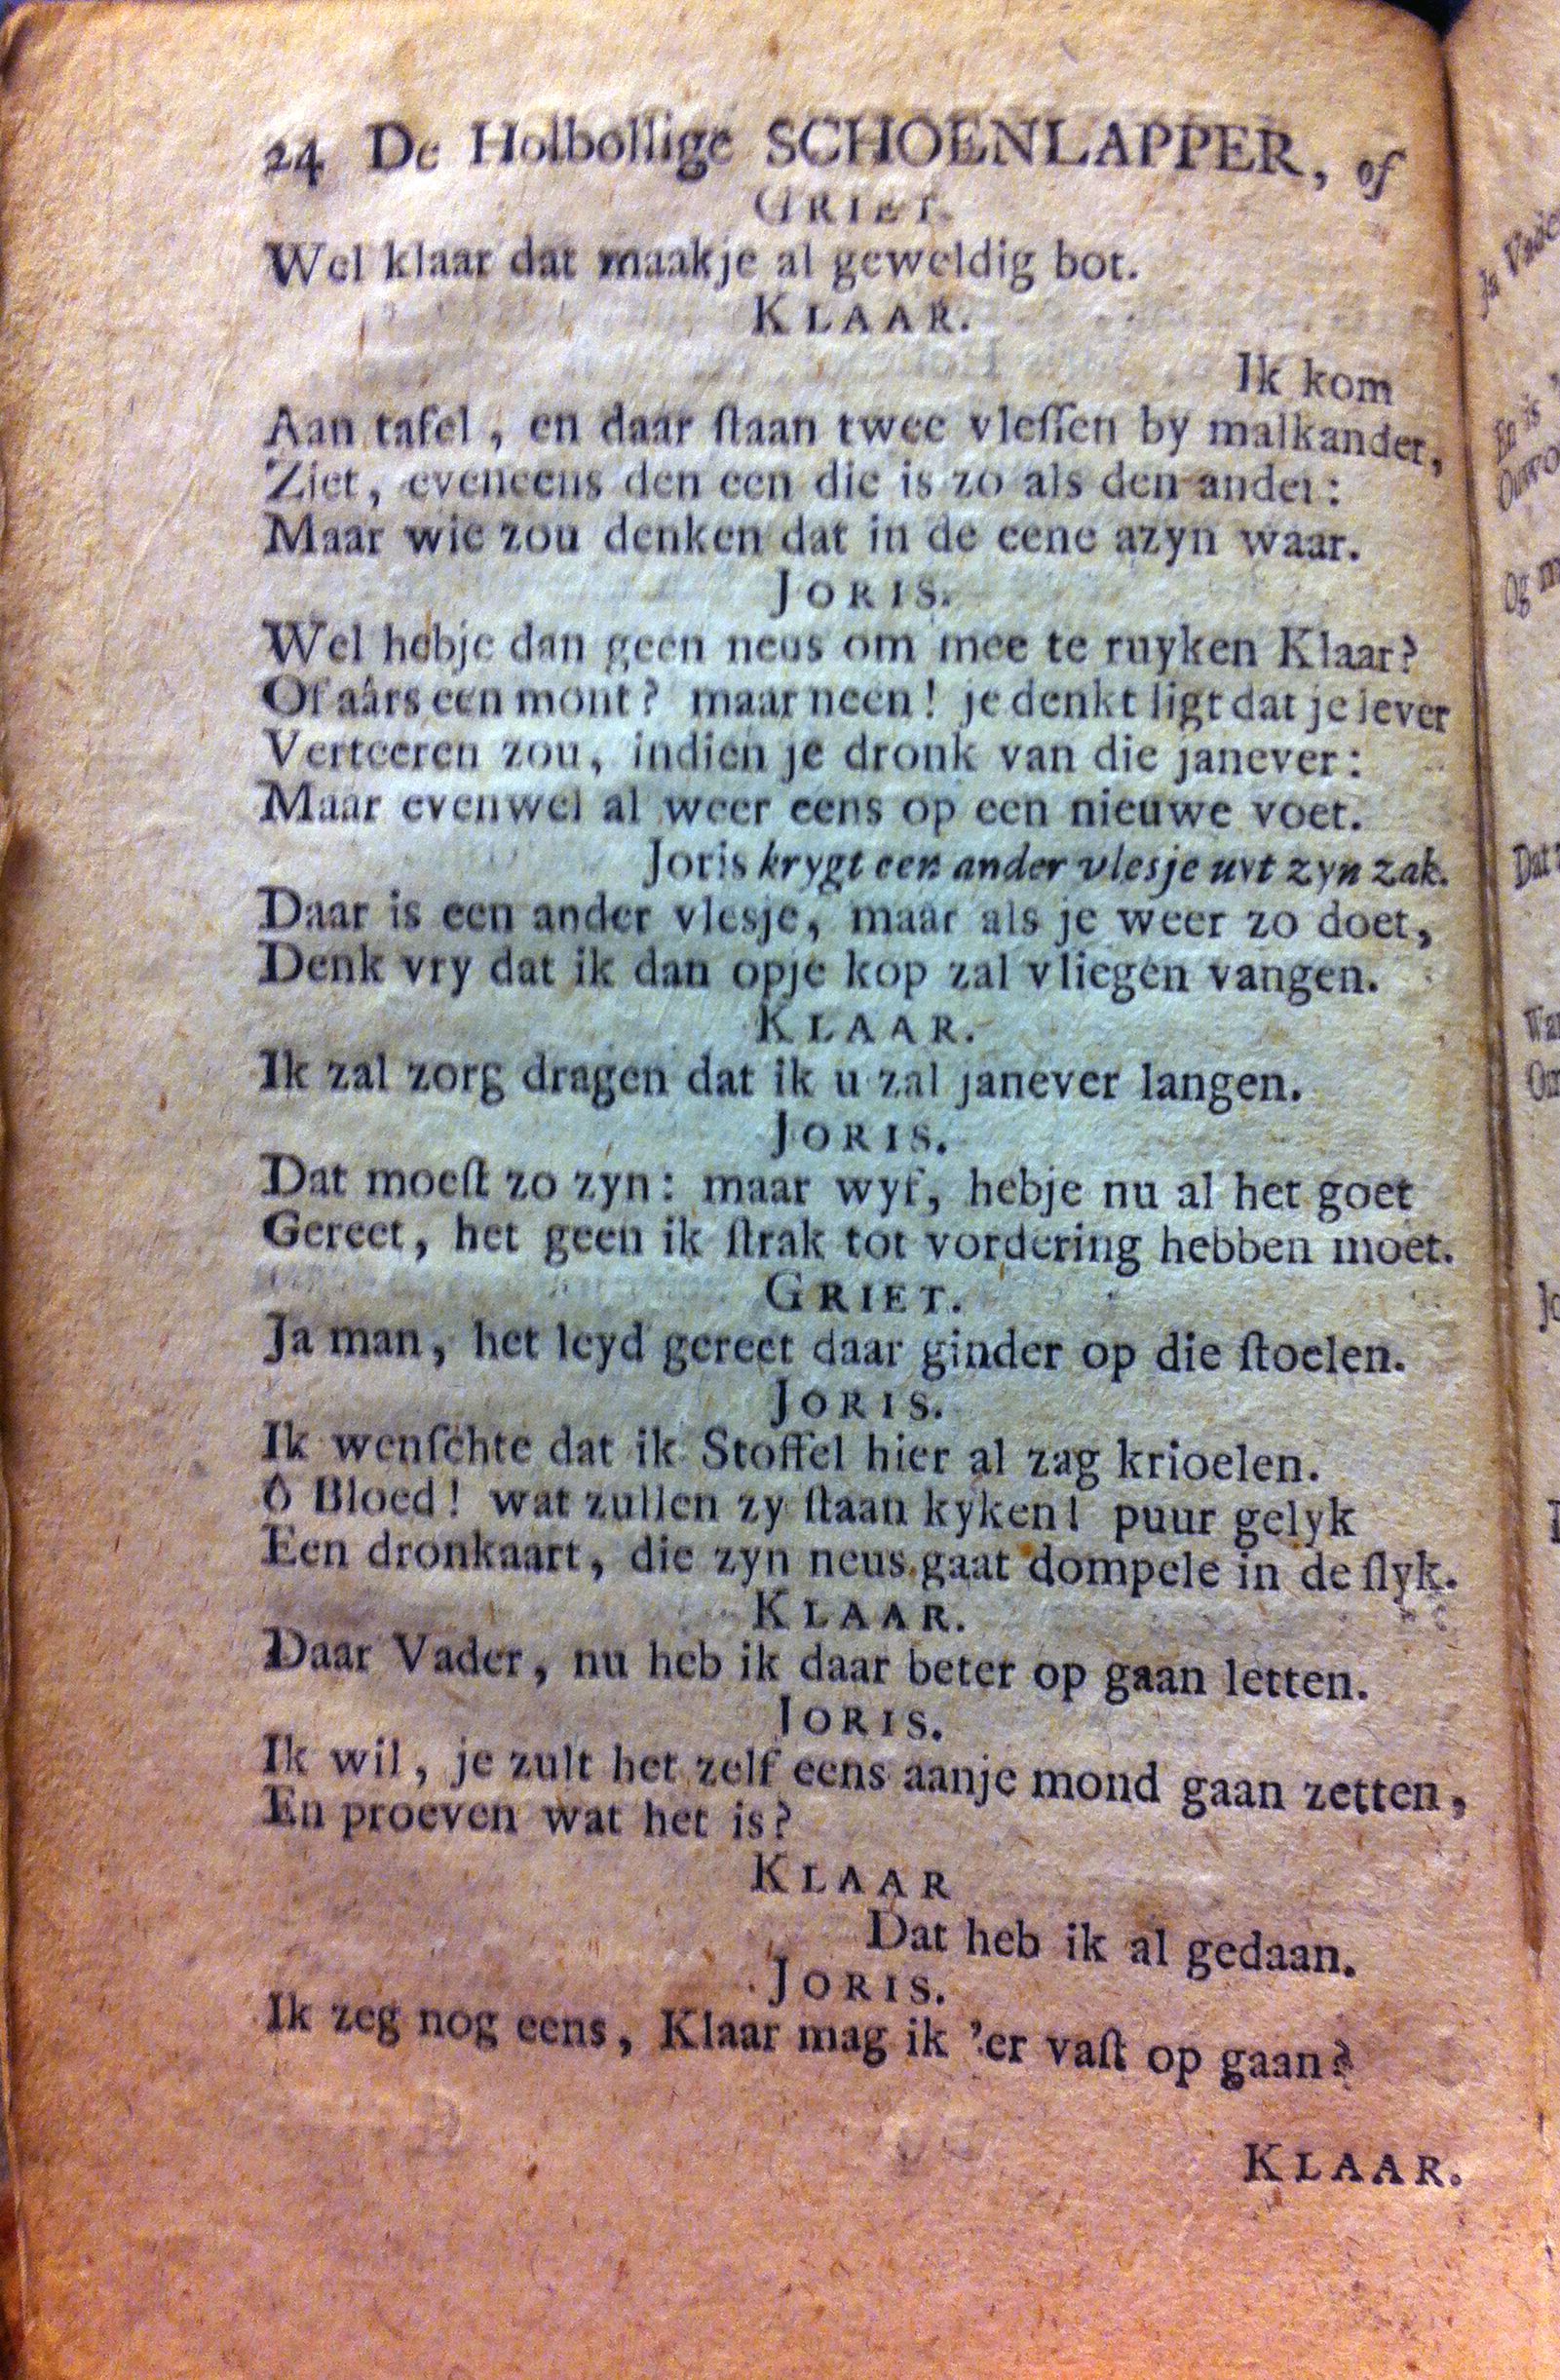 24 De Holbollige SCHOENLAPPER, of
GRIET.
Wel klaar dat maakje al geweldig bot.
KLAAR.
Ik kom
Aan tafel, en daar ſtaan twee vleſſen by malkander,
Ziet, eveneens den een die is zo als den ander:
Maar wie zou denken dat in de eene azyn waar.
JORIS.
Wel hebje dan geen neus om mee te ruyken Klaar?
Of aârs een mont? maar neen! je denkt ligt dat je lever
Verteeren zou, indien je dronk van die janever:
Maar evenwel al weer eens op een nieuwe voet.
Joris krygt een ander vlesje uyt zyn zak.
Daar is een ander vlesje, maar als je weer zo doet,
Denk vry dat ik dan opje kop zal vliegen vangen.
KLAAR.
Ik zal zorg dragen dat ik u zal janever langen.
JORIS.
Dat moeſt zo zyn: maar wyf, hebje nu al het goet
Gereet, het geen ik ſtrak tot vordering hebben moet.
GRIET.
Ja man, het leyd gereet daar ginder op die ſtoelen.
JORIS.
Ik wenſchte dat ik Stoffel hier al zag krioelen.
ô Bloed! wat zullen zy ſtaan kyken! puur gelyk
Een dronkaart, die zyn neus gaat dompele in de ſlyk.
KLAAR.
Daar Vader, nu heb ik daar beter op gaan letten.
JORIS.
Ik wil, je zult het zelf eens aanje mond gaan zetten,
En proeven wat het is?
KLAAR
Dat heb ik al gedaan.
JORIS.
Ik zeg nog eens, Klaar mag ik 'er vaſt op gaan?
KLAAR.